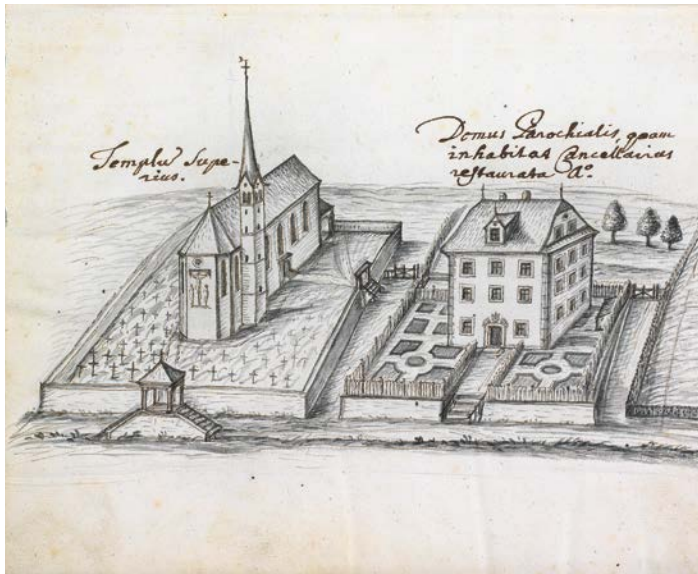 Templu Supe-
rius.
Domus Parochialis, quam
inhabitat Cancellarius
restaurata Aº.